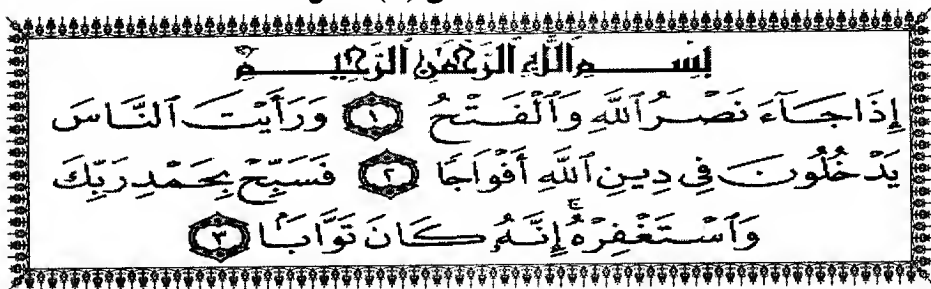 بِسْمِ ٱللَّهِ ٱلرَّحْمَٰنِ ٱلرَّحِيمِ
إِذَا جَآءَ نَصْرُ ٱللَّهِ وَٱلْفَتْحُ ۝١ وَرَأَيْتَ ٱلنَّاسَ
يَدْخُلُونَ فِى دِينِ ٱللَّهِ أَفْوَاجًا ۝٢ فَسَبِّحْ بِحَمْدِ رَبِّكَ
وَٱسْتَغْفِرْهُ ۚ إِنَّهُۥ كَانَ تَوَّابًۢا ۝٣